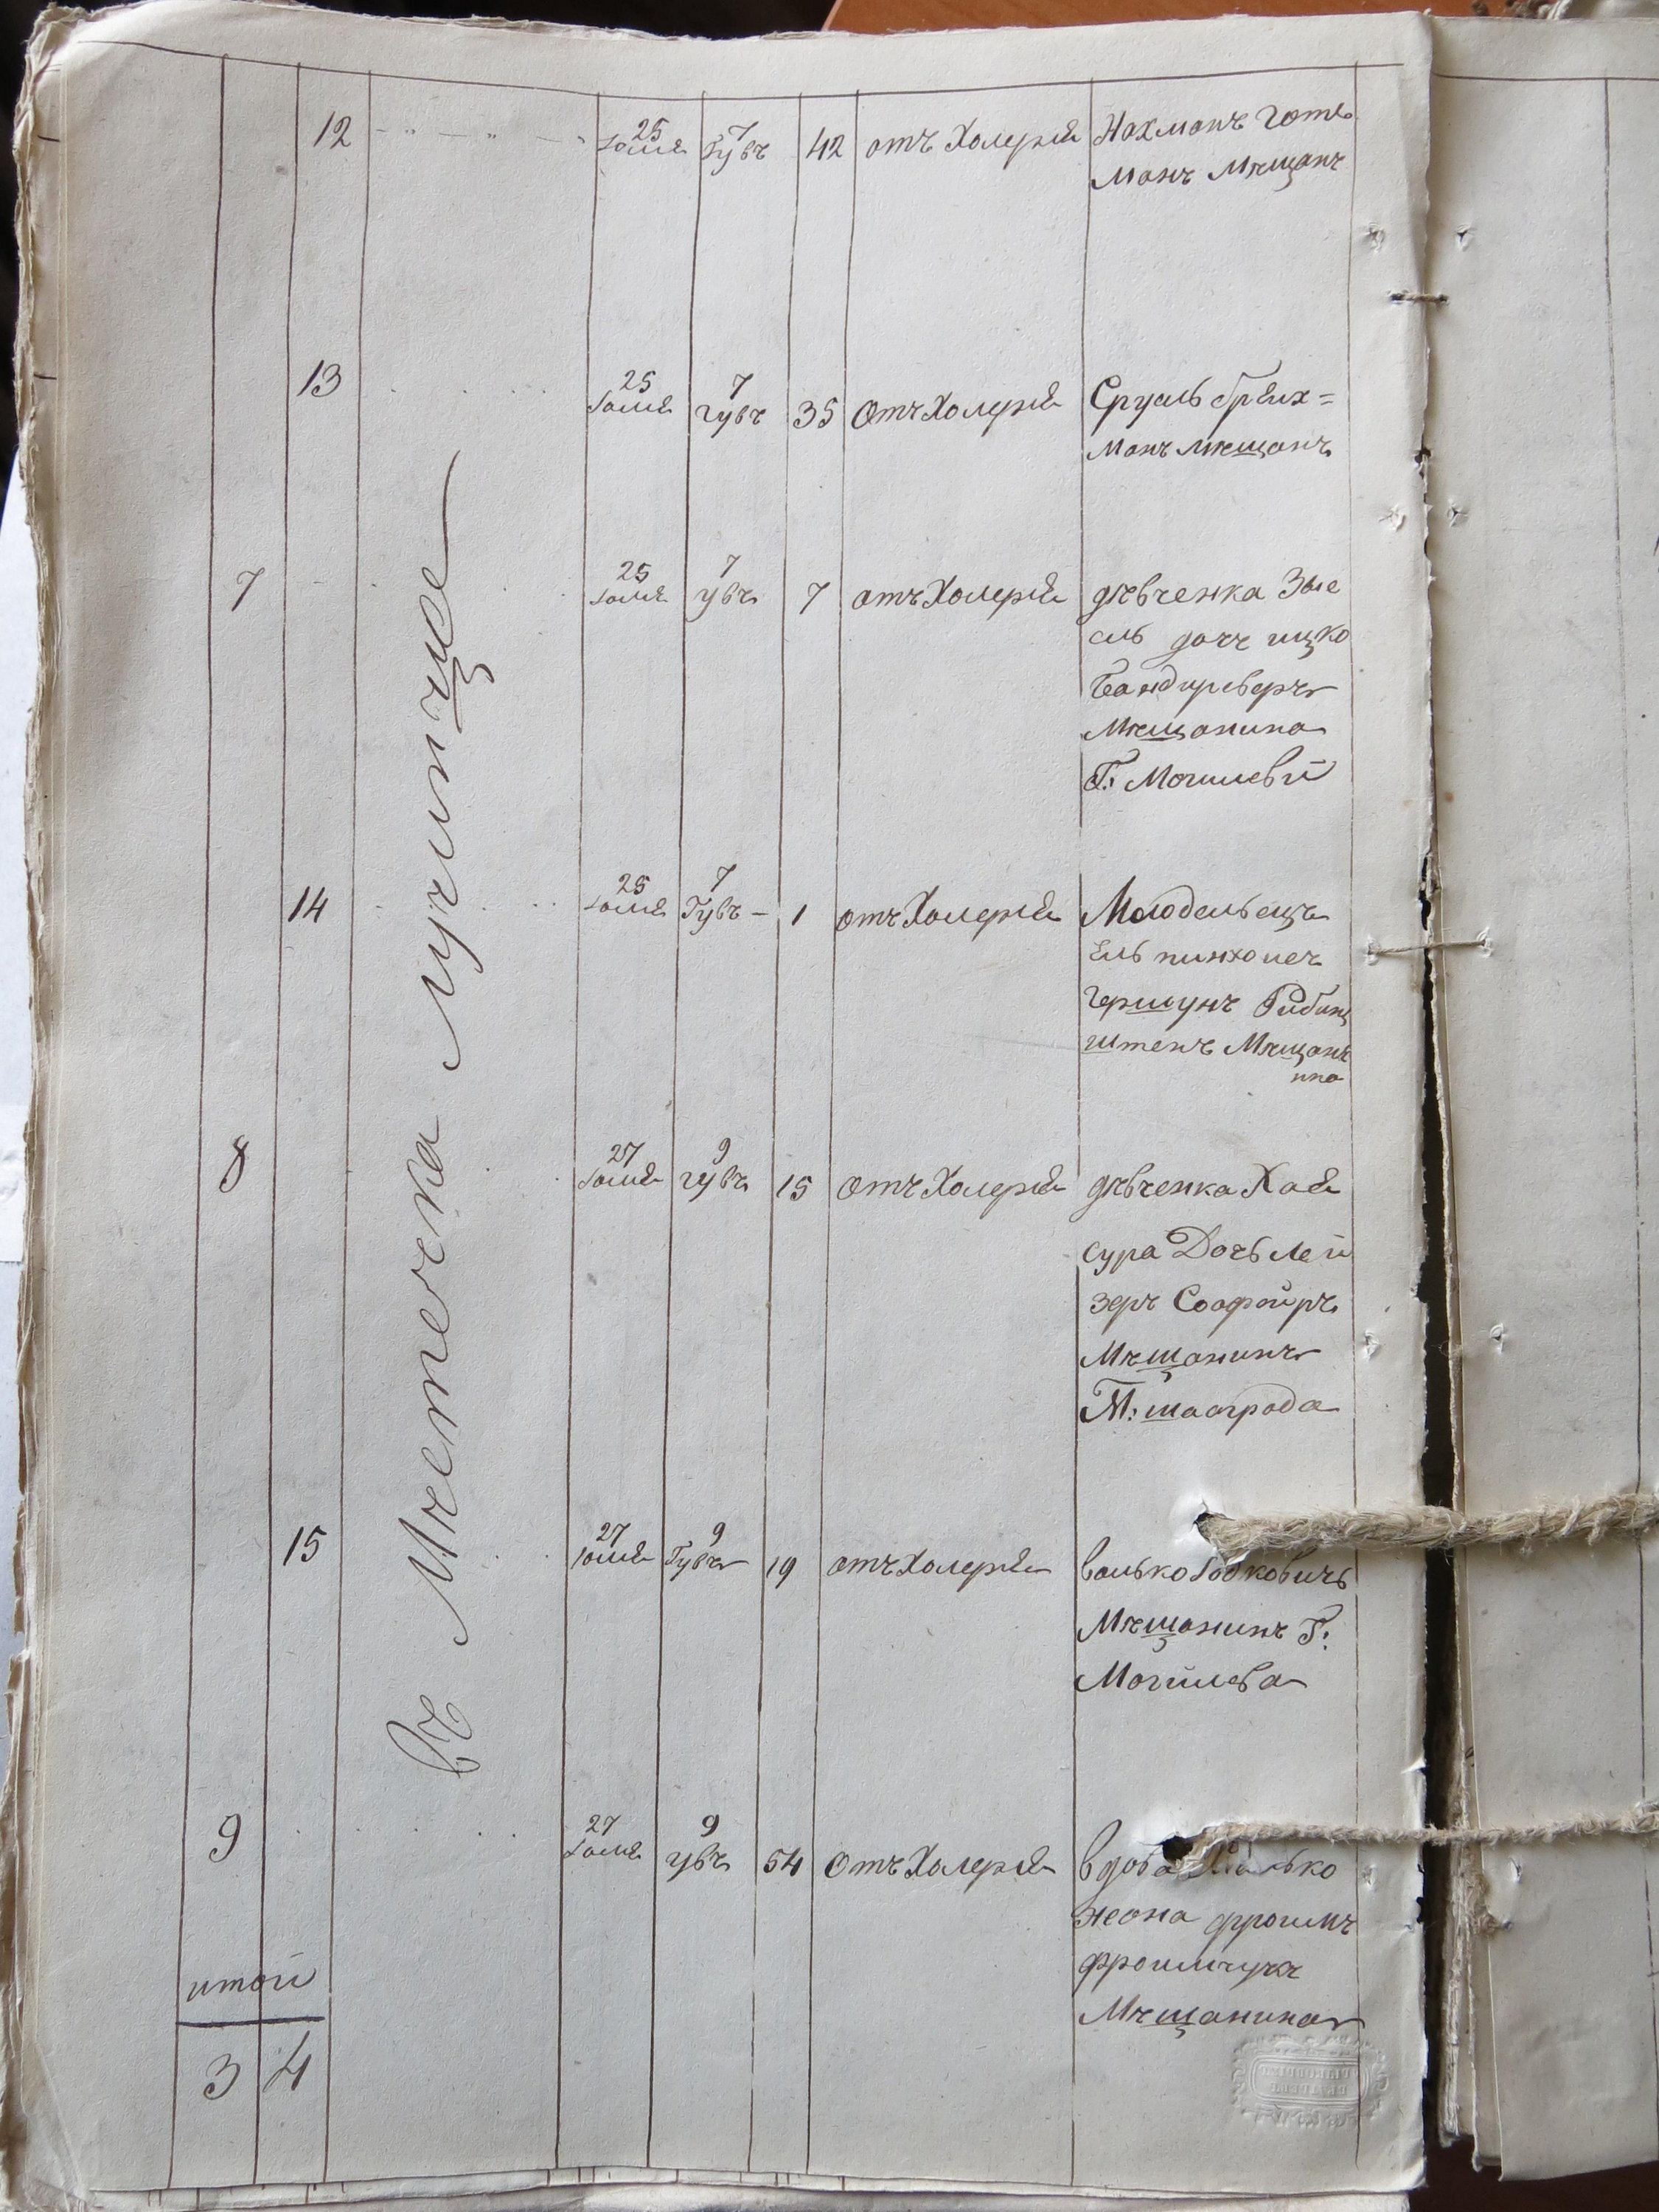 12 25 Юлия 7 Гувъ 42 отъ Холерій Нахманъ Готе
манъ Мѣщанъ
13 25 Юлія 7 Гувъ 35 Отъ Холерій Сруль Грейх=
манъ мѣщанъ
7 25 Юлія 7 увъ 7 отъ Холерій дѣвченка Зыс
сль дочъ ицко
Бандирсверъ
Мѣщанина
Г: Могилевй
14 25 Юлія 7 Гувъ 1 отъ Холерій Молоделецъ
Ель пинхонеъ
Гершунъ Рибин
штенъ Мѣщан
ина
8 27 Юлія 9 гувъ 15 отъ Холерій дѣвченка Хай
сура Дочь лей
зеръ Соафайръ
Мѣщанинъ
М: шаограда
15 27 Юлій 9 Гувъ 19 отъ Холерій Волько
Мѣщанинъ Г:
Могилева
9 27 Юлій 9 увъ 54 Отъ Холерій вдова
жеона фроимъ
фроимчукъ
Мѣщанина
въ Мѣстечка лучинчще
итой
3 4